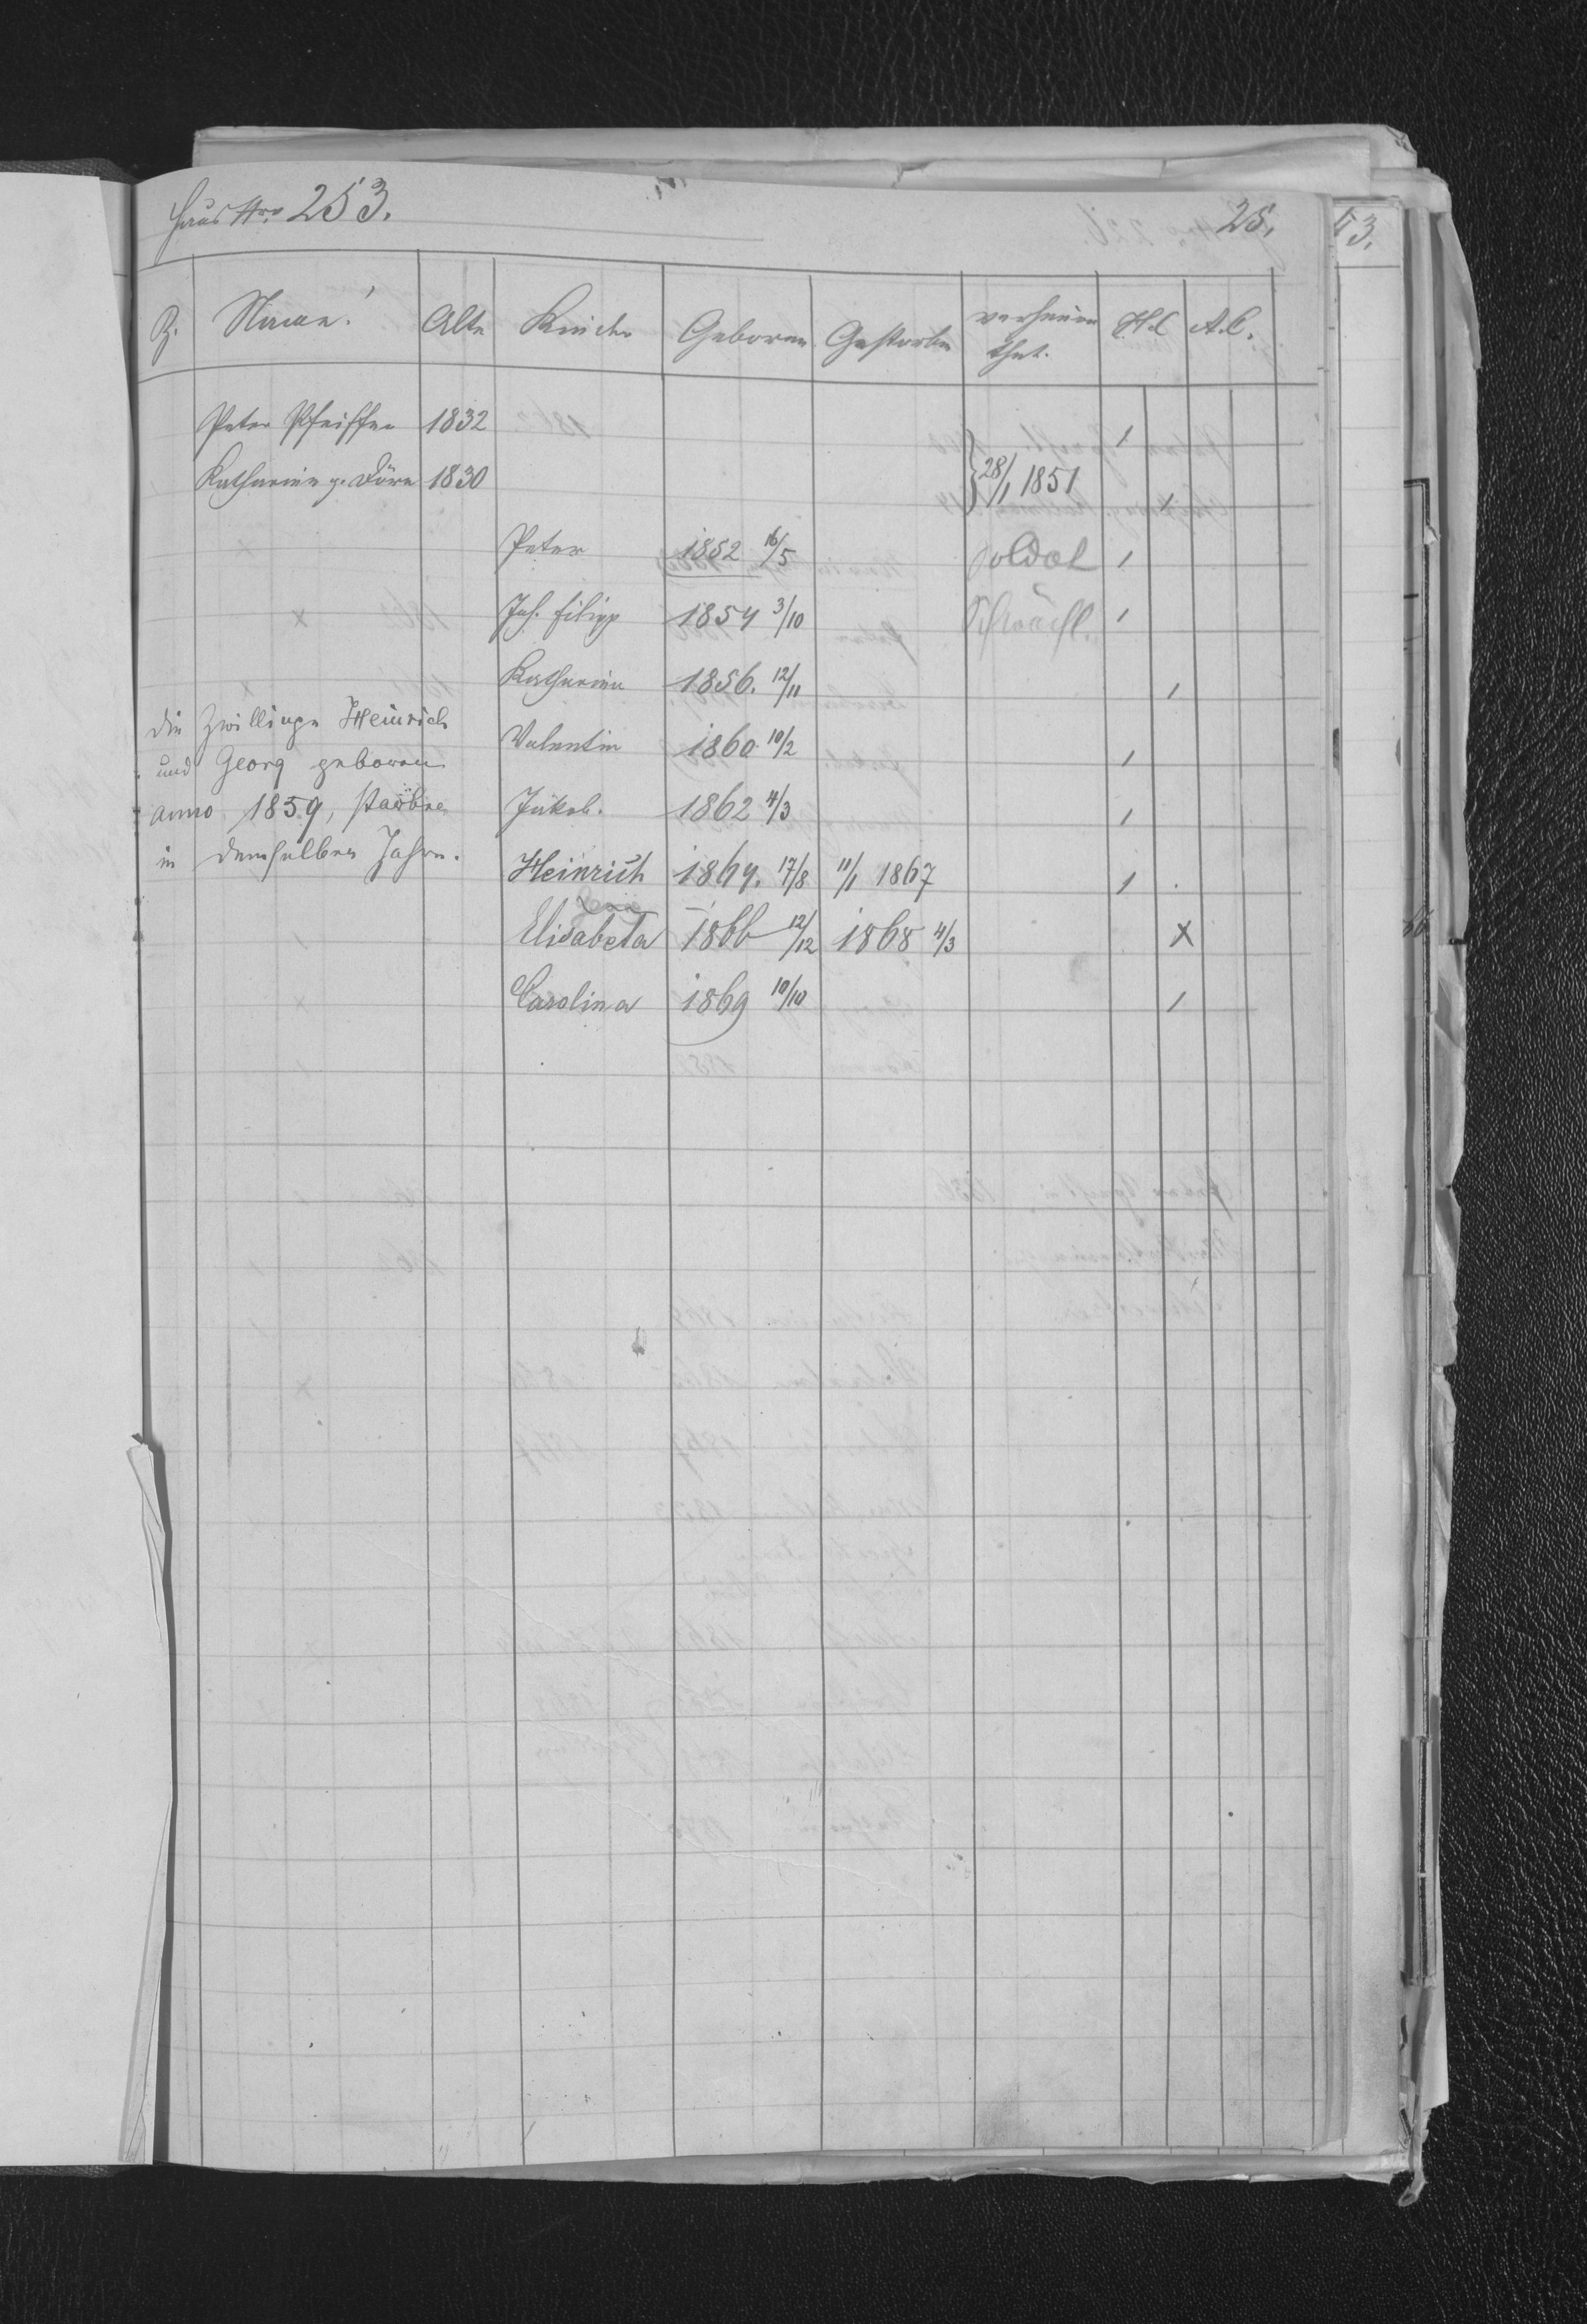 Haus Nro 253. 25.
Z. Name. Alte Kinder Geboren Gestorben verheira H.C. A.C.
thet.
Peter Pfeiffer 1832 1
Katharina g. Dörr 1830 28/1 1851 1
Peter 1852 16/5 Soldat 1
Joh. Filipp 1854 3/10 Schwächl. 1
Katharina 1856. 12/11 1
Valentin 1860 10/2 1
Jakob. 1862 4/3 1
Heinrich 1864. 17/8 11/1 1867 1
Elisabeta 1866 12/12 1868 4/3 x
Carolina 1869 10/10 1
die Zwillinge Heinrich
und Georg geboren
anno 1859, starben
in demselben Jahre.
53.